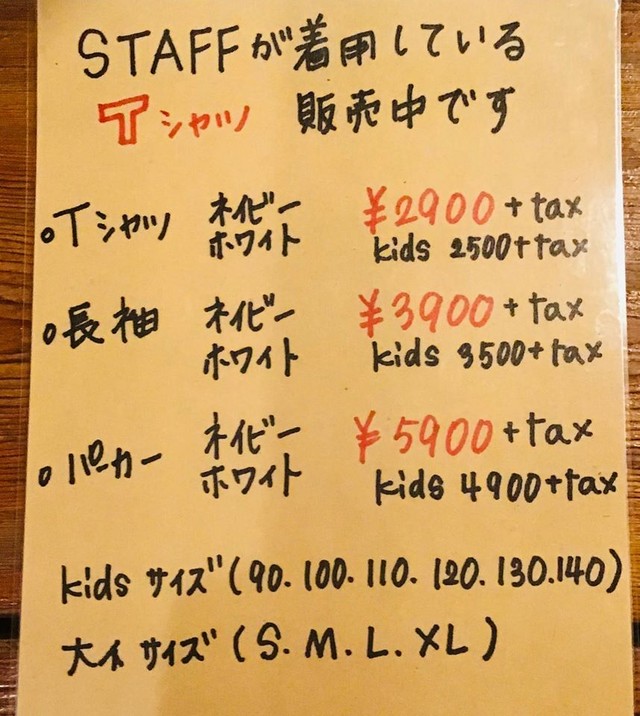 STAFFが着用している
Tシャツ 販売中です
Tシャツ ネイビー ¥2900+tax
ホワイト kids 2500+tax
長袖 ネイビー ¥3900+tax
ホワイト kids 3500+tax
パーカー ネイビー ¥5900+tax
ホワイト kids 4900+tax
kids サイズ(90.100.110.120.130.140)
大人サイズ(S.M.L.XL)